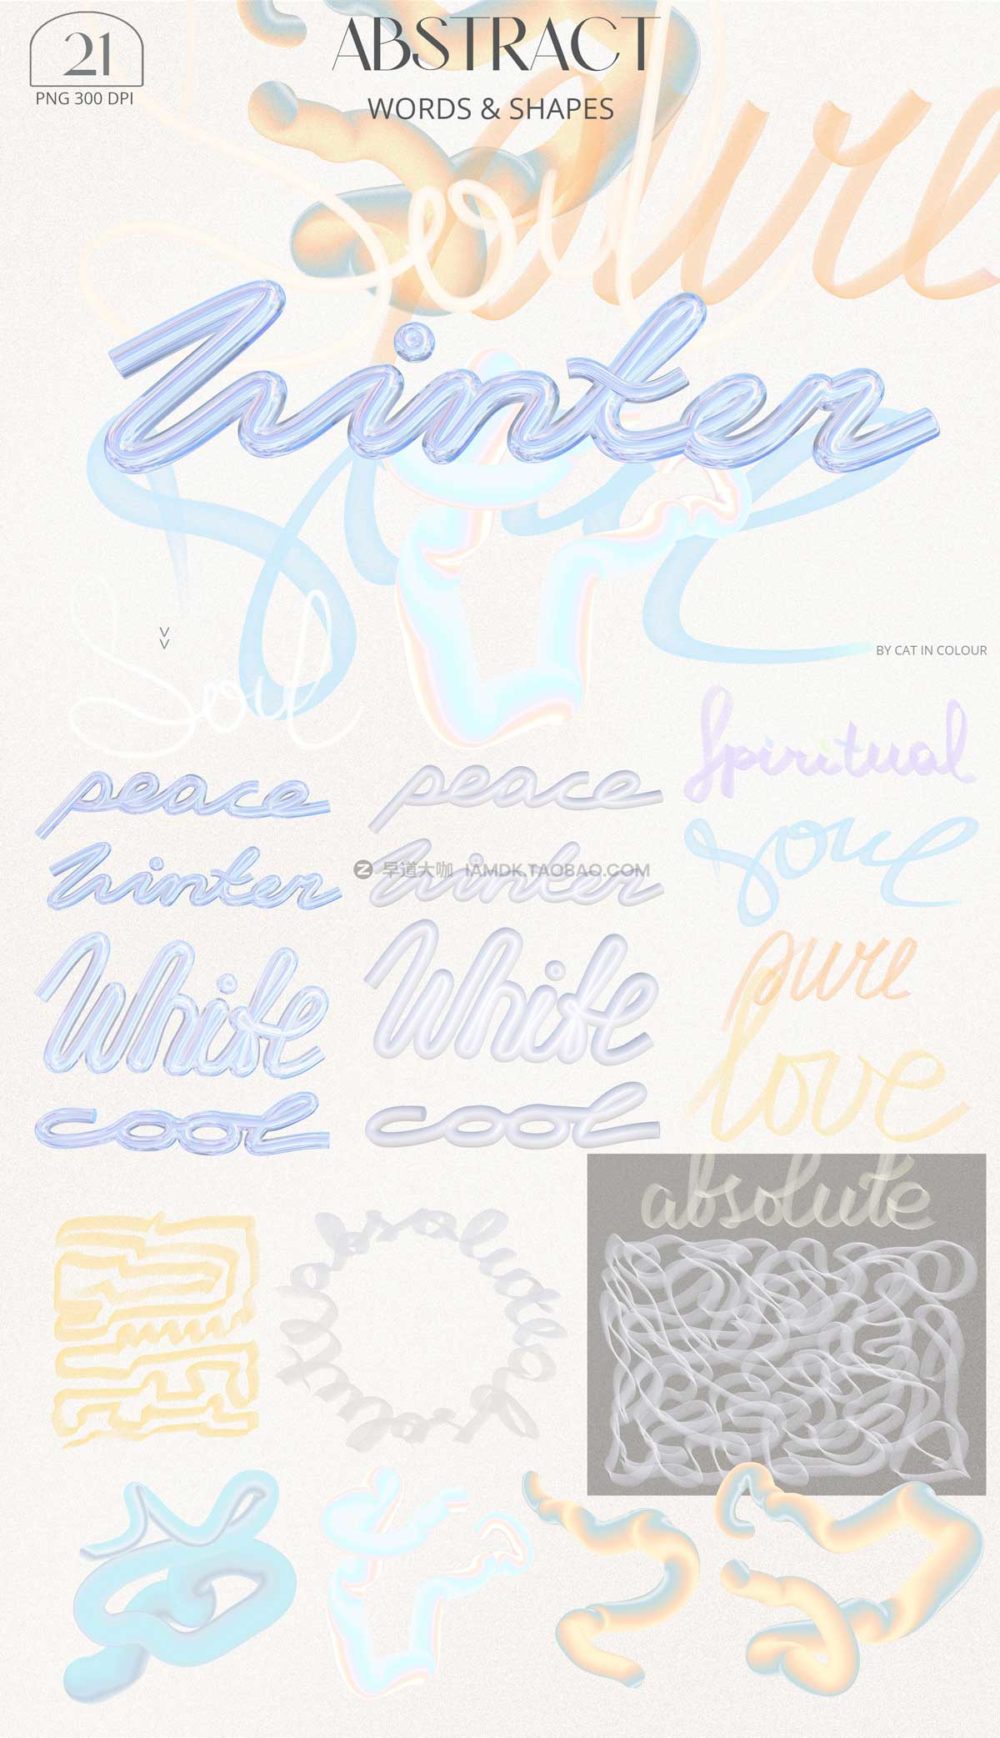 21
PNG 300 DPI
ABSTRACT
WORDS & SHAPES
pure
Soul
winter
soul
BY CAT IN COLOUR
Soul
Spiritual
peace peace
soul
winter winter
早道大咖 IAMDK.TAOBAO.COM
pure
White White
love
cool cool
absolute